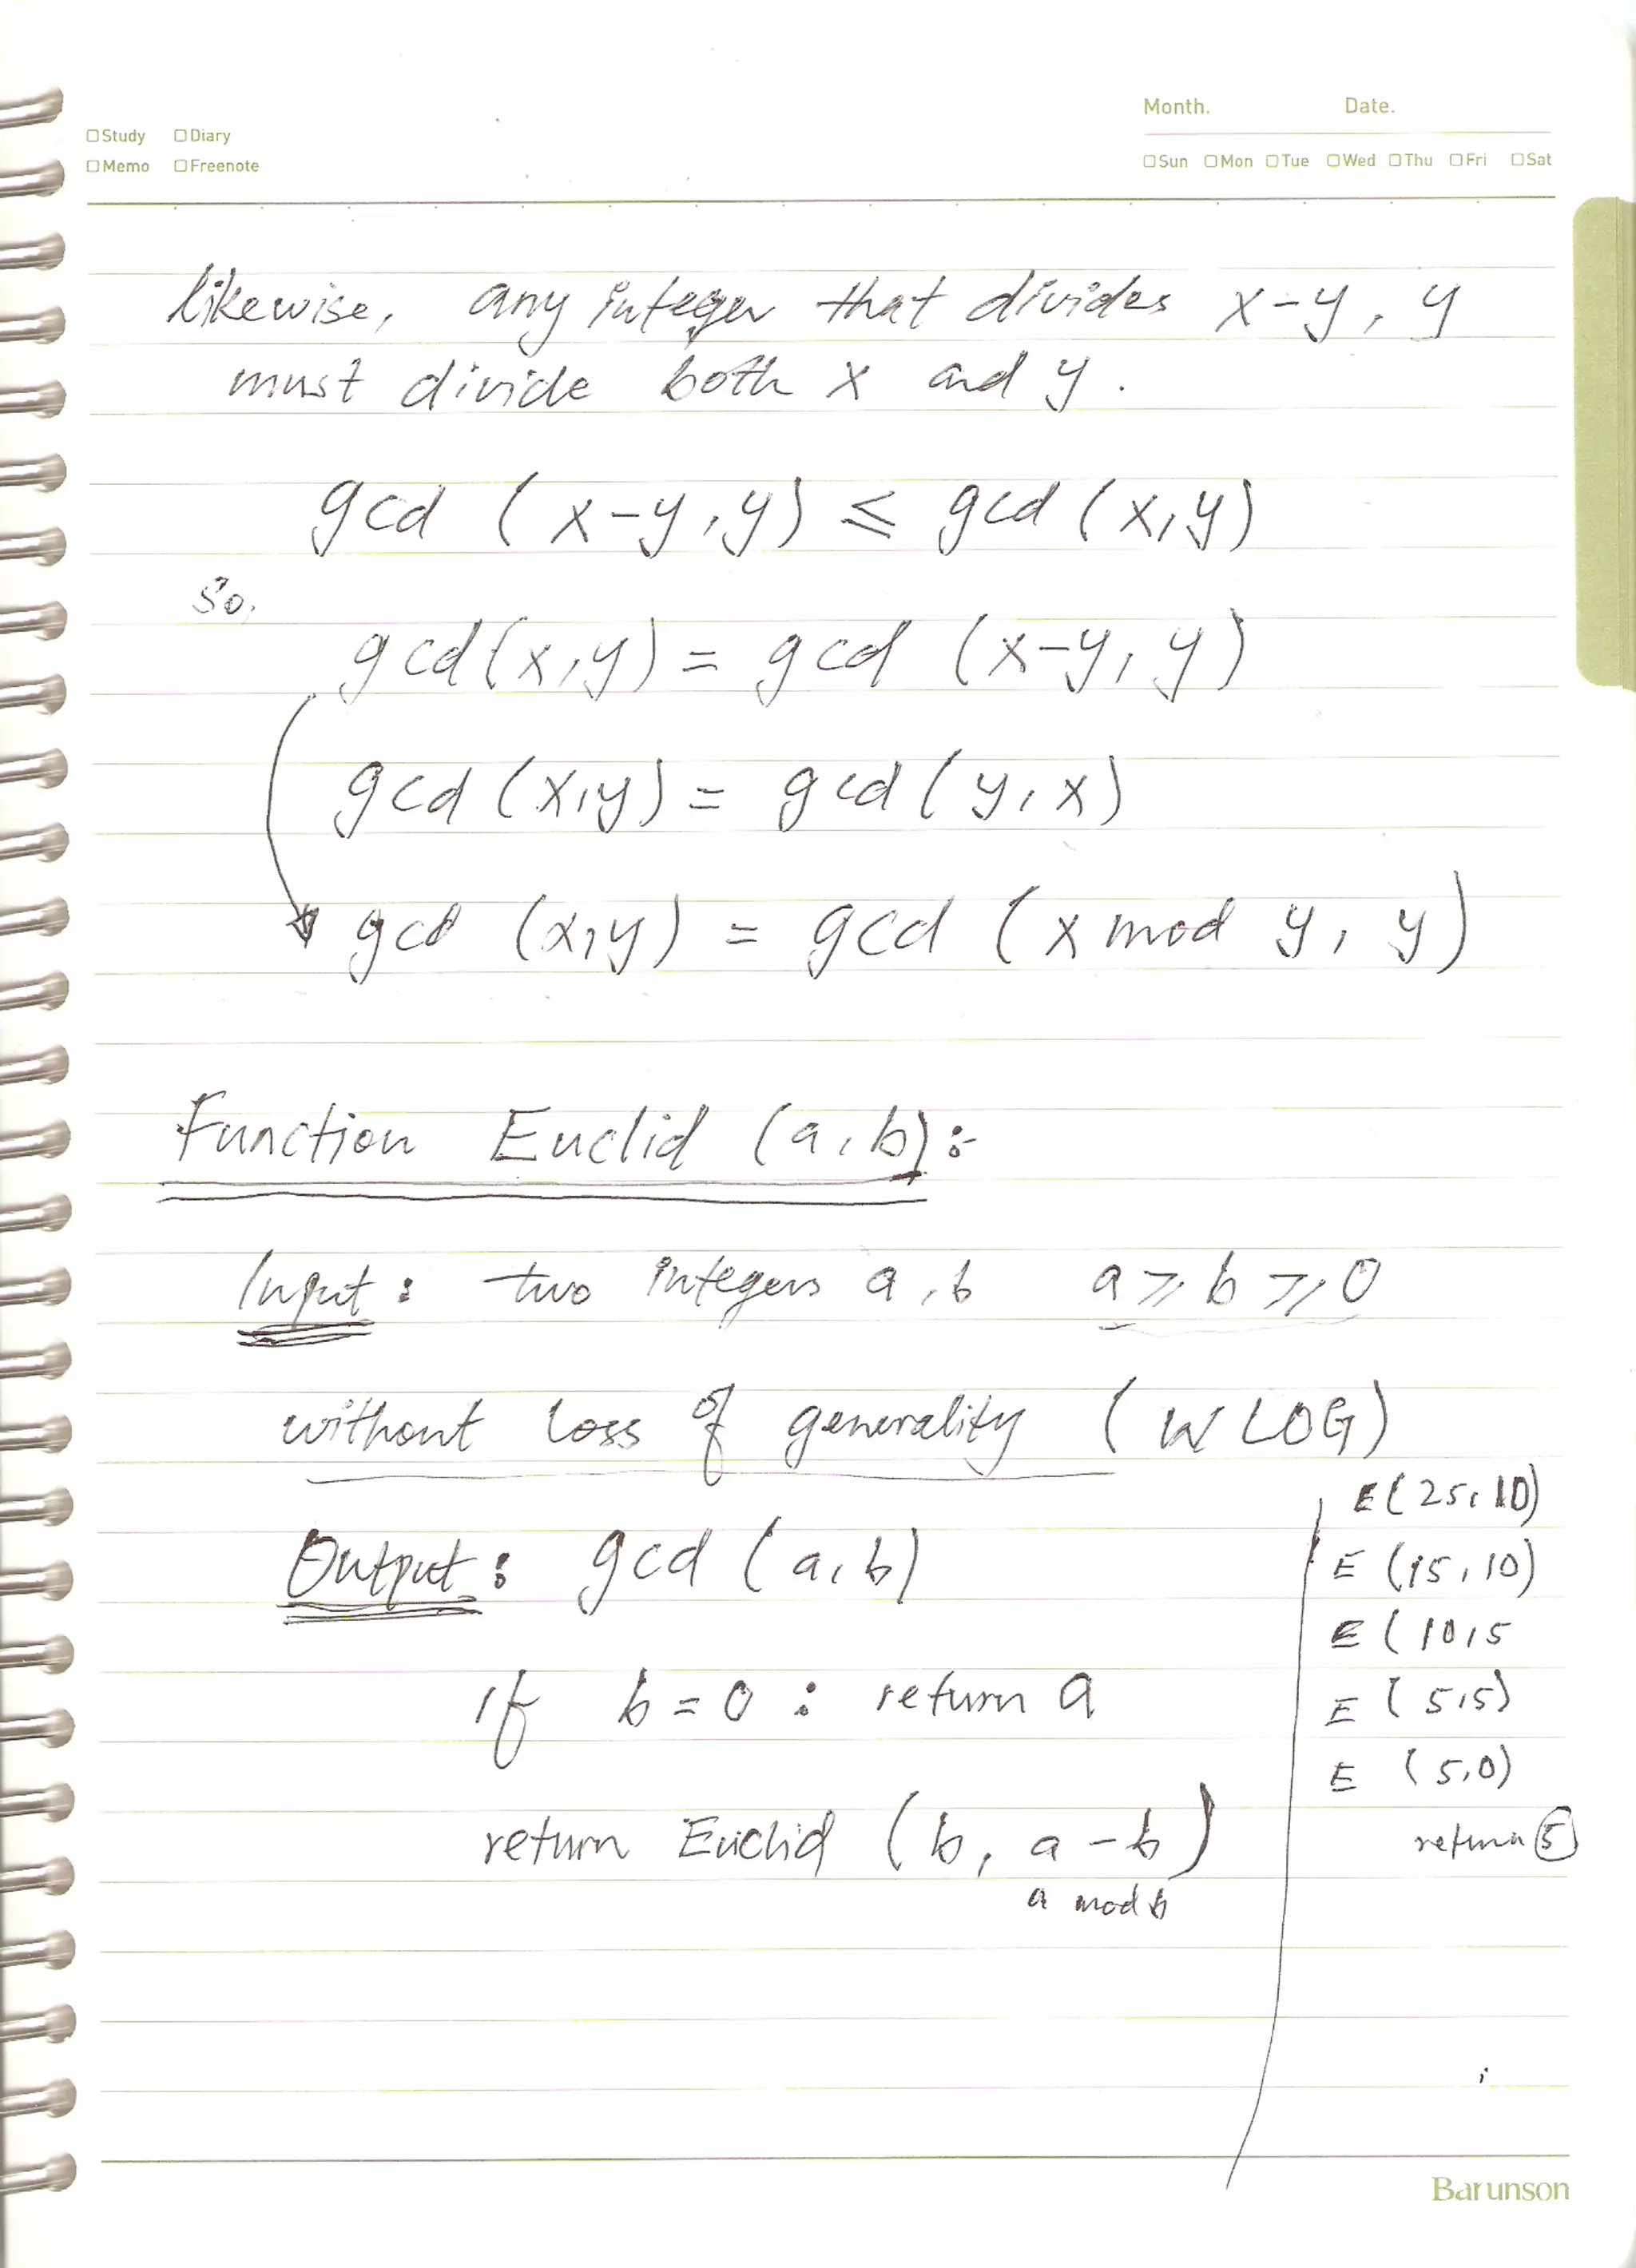 Month. Date.
☐Study ☐Diary
☐Memo ☐Freenote
☐Sun ☐Mon ☐Tue ☐Wed ☐Thu ☐Fri ☐Sat
likewise, any integer that divides x-y, y
must divide both x and y.
gcd (x-y, y) ≤ gcd (x, y)
So,
gcd (x, y) = gcd (x-y, y)
gcd (x, y) = gcd (y, x)
gcd (x, y) = gcd (x mod y, y)
Function Euclid (a, b):-
Input: two integers a, b a ≥ b ≥ 0
without loss of generality (WLOG)
Output: gcd (a, b)
if b = 0 : return a
return Euclid (b, a - b)
a mod b
E (25, 10)
E (15, 10)
E (10, 5
E (5, 5)
E (5, 0)
return 5
Barunson